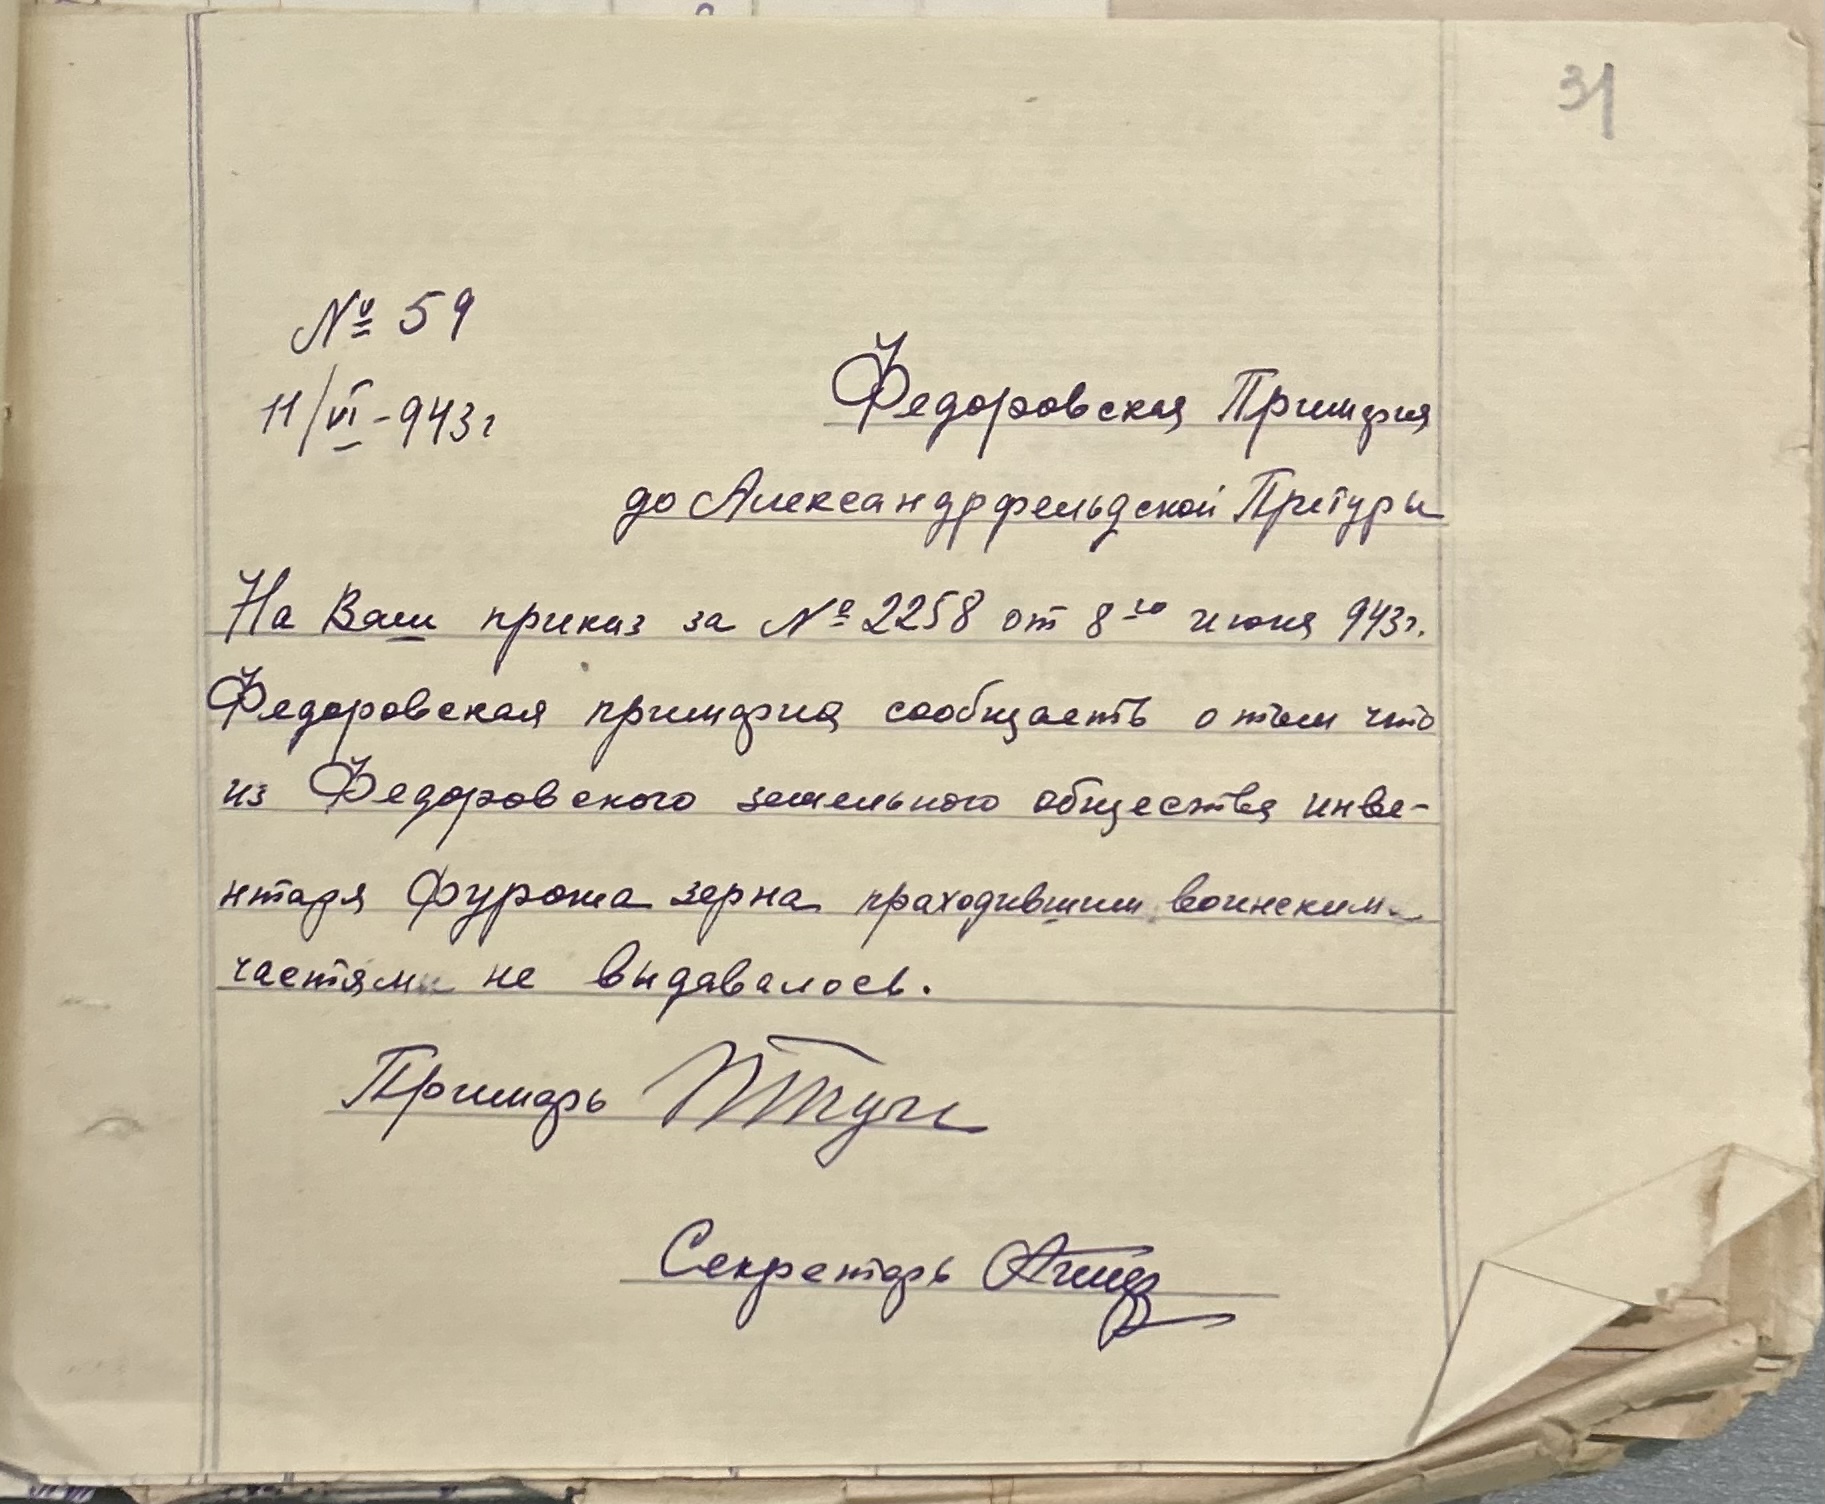 31
№ 59
11/VI-943г
Федоровская Примария
до Александрфельдской Претуры
На Ваш приказ за № 2258 от 8го июня 943г.
Федоровская примария сообщаеть о том что
из Федоровского земельного общества инве-
нтаря Фуража зерна праходившим воинским
частями не выдавалось.
Примарь
Секретарь